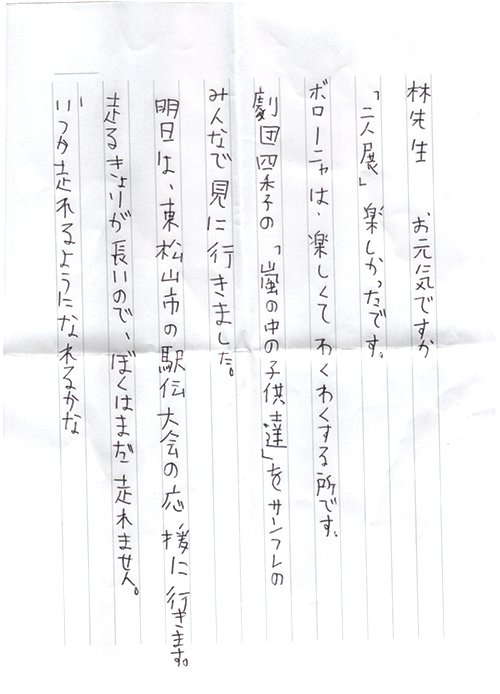 林先生　お元気ですか
「二人展」楽しかったです。
ボローニャは、楽しくてわくわくする所です。
劇団四季子の「嵐の中の子供達」をサンフレの
みんなで見に行きました。
明日は、東松山市の駅伝大会の応援に行きます。
走るきょりが長いので、ぼくはまだ走れません。
いつか走れるようになれるかな